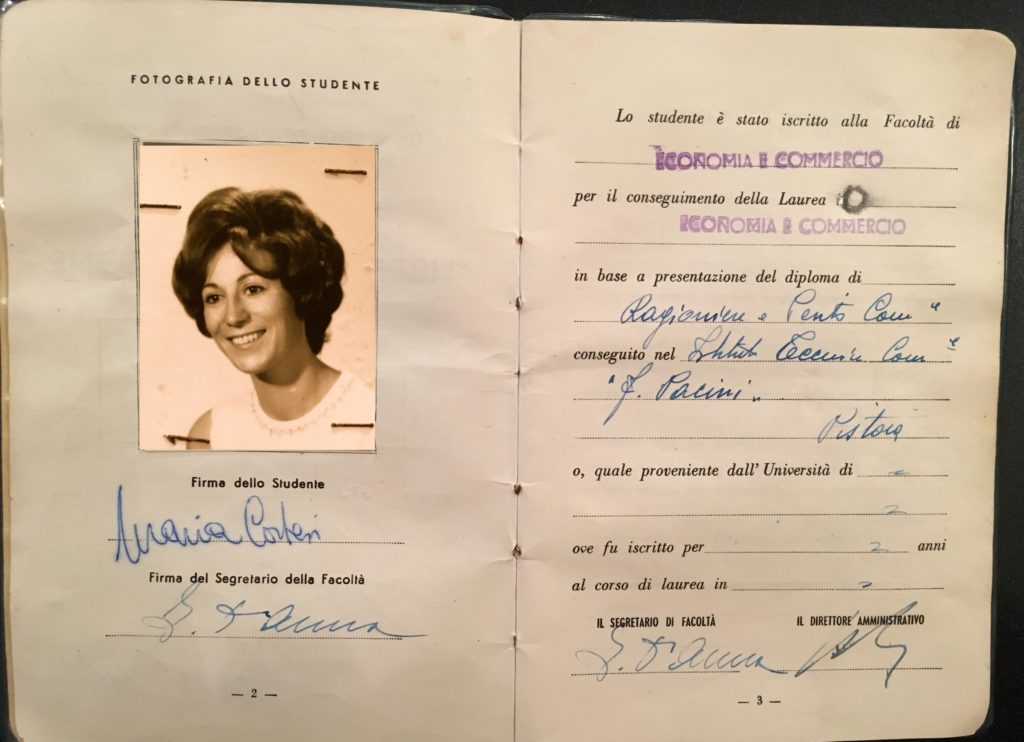 FOTOGRAFIA DELLO STUDENTE
Firma dello Studente
Maria
Firma del Segretario della Facoltà
— 2 —
Lo studente è stato iscritto alla Facoltà di
ECONOMIA E COMMERCIO
per il conseguimento della Laurea
ECONOMIA E COMMERCIO
in base a presentazione del diploma di
Ragioniere e Perito Com"e
conseguito nel Istituto Com"e
"F. Pacini"
Pistoia
o, quale proveniente dall' Università di
ove fu iscritto per anni
al corso di laurea in
IL SEGRETARIO DI FACOLTÀ IL DIRETTORE AMMINISTRATIVO
— 3 —